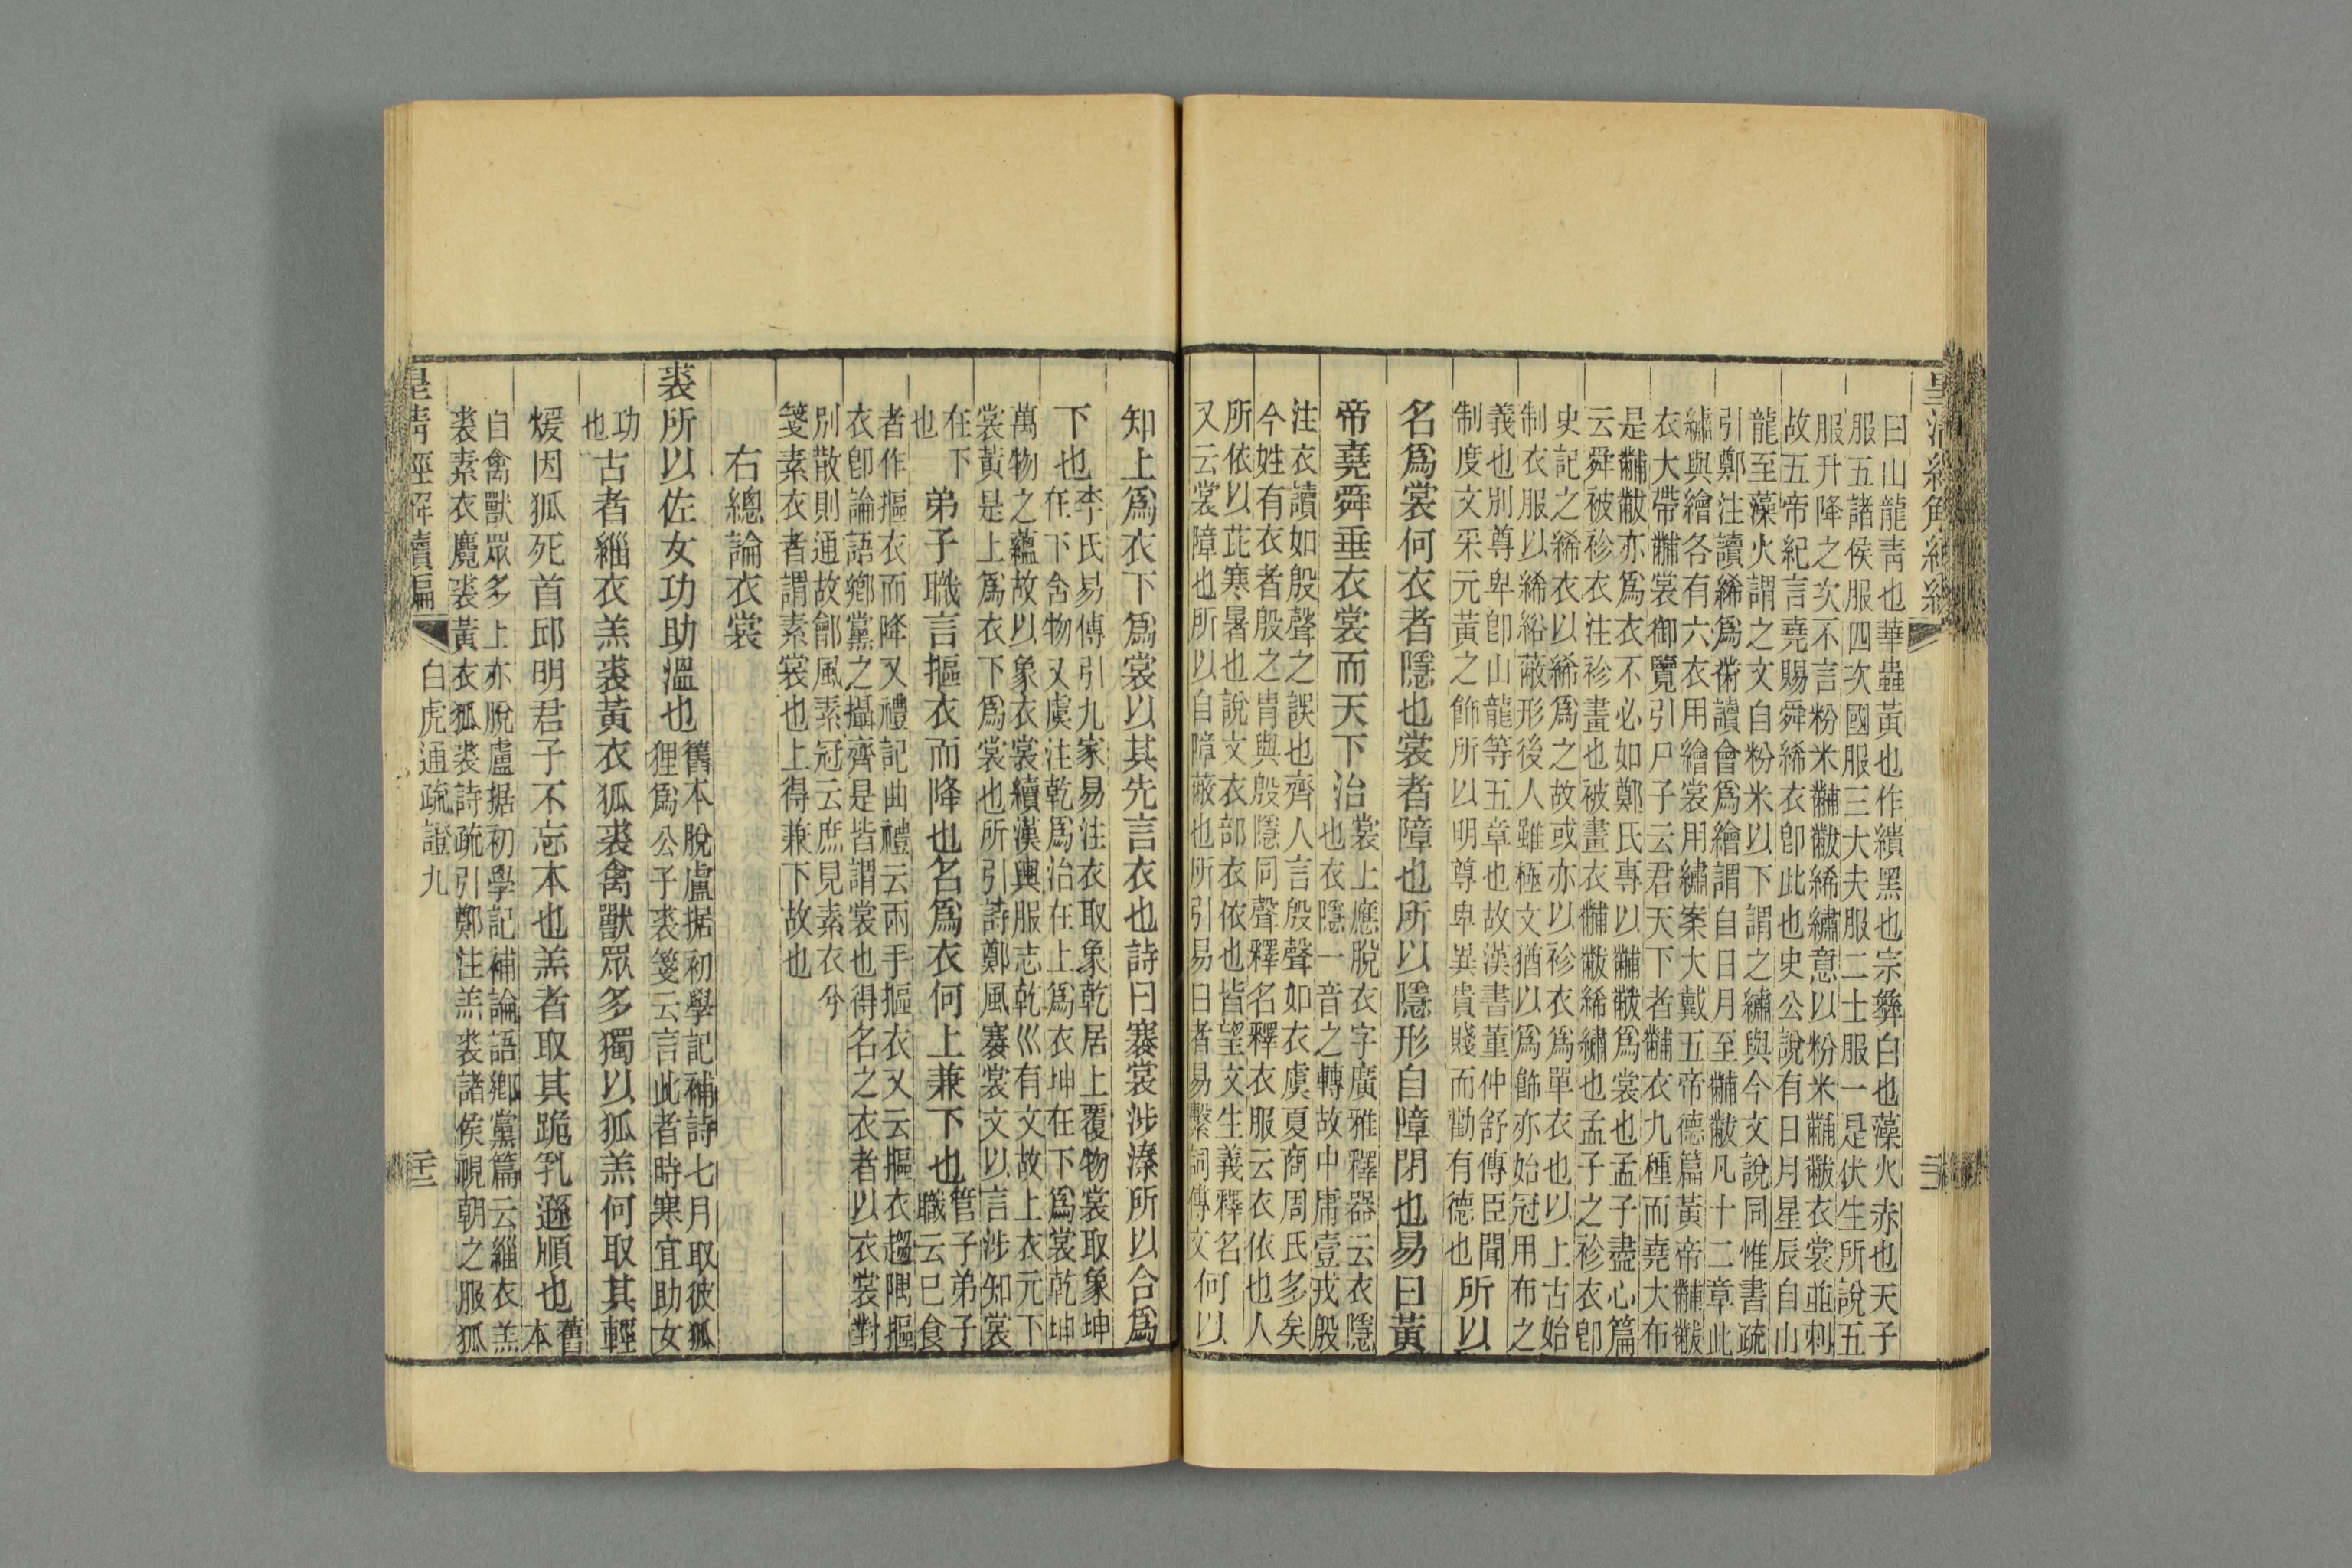 曰山龍靑也華蟲黃也作繢黑也宗彝白也藻火赤也天子
服五諸侯服四次國服三大夫服二士服一是伏生所說五
服升降之次不言粉米黼黻絺繡意以粉米黼黻衣裳並刺
故五帝紀言堯賜舜絺衣卽此也史公說有日月星辰自山
龍至藻火謂之文自粉米以下謂之繡與今文說同惟書疏
引鄭注讀絺爲黹讀會爲繪謂自日月至黼黻凡十二章此
繡與繪各有六衣用繪裳用繡案大戴五帝德篇黃帝黼黻
衣大帶黼裳御覽引尸子云君天下者黼衣九種而堯大布
是黼黻亦爲衣不必如鄭氏專以黼黻爲裳也孟子盡心篇
云舜被袗衣注袗畫也被畫衣黼黻絺繡也孟子之袗衣卽
史記之絺衣以絺爲之故或亦以袗衣爲單衣也以上古始
制衣服以絺綌蔽形後人雖極文猶以爲飾亦始冠用布之
義也別尊卑卽山龍等五章也故漢書董仲舒傳臣聞
制度文采元黃之飾所以明尊卑異貴賤而勸有德也
所以
名爲裳何衣者隱也裳者障也所以隱形自障閉也易曰黃
帝堯舜垂衣裳而天下治
裳上應脫衣字廣雅釋器云衣隱
也衣隱一音之轉故中庸壹戎殷
注衣讀如殷聲之誤也齊人言殷聲如衣虞夏商周氏多矣
今姓有衣者殷之冑與殷隱同聲釋名釋衣服云衣依也人
所依以芘寒暑也說文衣部衣依也皆望文生義釋名
又云裳障也所以自障蔽也所引易曰者易繫詞傳文
何以
知上爲衣下爲裳以其先言衣也詩曰褰裳涉溱所以合爲
下也
李氏易傳引九家易注衣取象乾居上覆物裳取象坤
在下含物又虞注乾爲治在上爲衣坤在下爲裳乾坤
萬物之蘊故以象衣裳續漢輿服志乾巛有文故上衣元下
裳黃是上爲衣下爲裳也所引詩鄭風褰裳文以言涉知裳
在下
也
弟子職言摳衣而降也名爲衣何上兼下也
管子弟子
職云已食
者作摳衣而降又禮記曲禮云兩手摳衣又云摳衣趨隅摳
衣卽論語鄉黨之攝齊是皆謂裳也得名之衣者以衣裳對
別散則通故鄶風素冠云庶見素衣兮
箋素衣者謂素裳也上得兼下故也
右總論衣裳
裘所以佐女功助溫也
舊本脫盧据初學記補詩七月取彼狐
狸爲公子裘箋云言此者時寒宜助女
功
也
古者緇衣羔裘黃衣狐裘禽獸眾多獨以狐羔何取其輕
煖因狐死首邱明君子不忘本也羔者取其跪乳遜順也
舊
本
自禽獸眾多上亦脫盧据初學記補論語鄉黨篇云緇衣羔
裘素衣麑裘黃衣狐裘詩疏引鄭注羔裘諸侯視朝之服狐
皇淸經解續編
白虎通疏證九